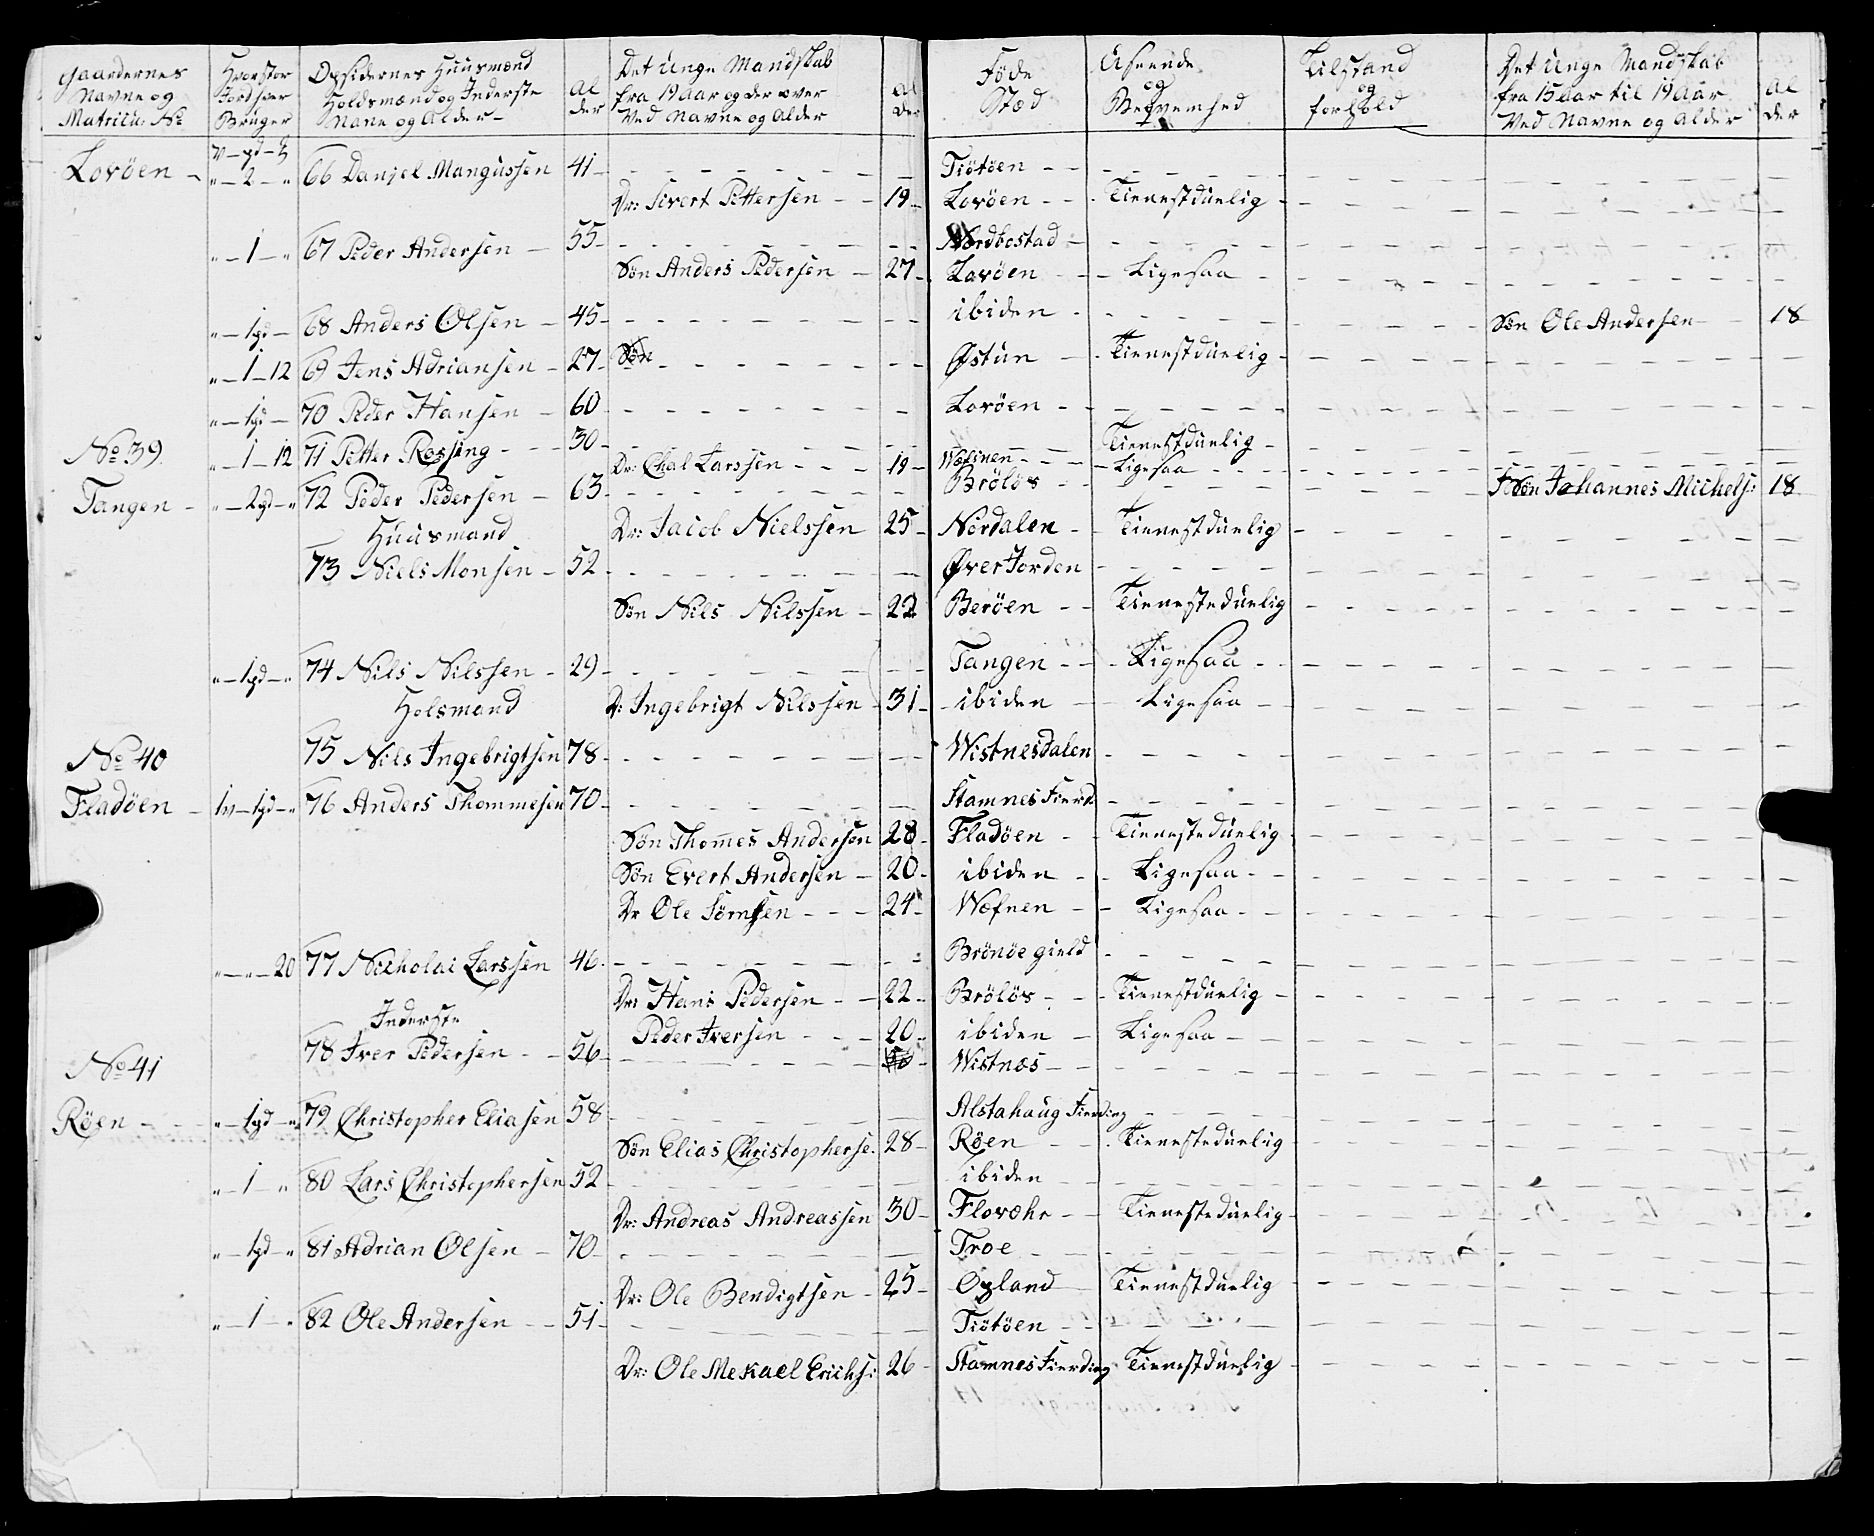 Gaardernes Navne og Matricu: No | Hvor stor Jord hver Bruger | Opsidernes Huusmænd Holdsmænd og Inderste Nane og Alder | Al der | Det Unge Mandskab fra 19 Aar og der over Ved Navne og Alder | Al der | Føde Stæd | Udseende og Beqvemhed | Tilstand og forhold | Det Unge Mandskab fra 15 Aar til 19 Aar Ved Navne og Alder | Al der
Lovöen - „-2-„ 66 Daniel Mangussen 41 - Tiötöen
Dr: Sivert Pettersen - 19 - Lovöen - Tienestduelig
„-1-„ 67 Peder Andersen - 55 - Nordbostad
Søn Anders Pedersen - 27 - Lovöen - Ligesaa
„-1pd- 68 Anders Olsen - 45 - ibiden - Søn Ole Andersen - 18
„-1-12 69 Jens Adriansen - 27 - Søn - Østun - Tienestduelig
„-1pd- 70 Peder Hansen - 60 - Lovöen
No 39
„-1-12 71 Petter Rossing - 30 - Tienestduelig
Dr: Chal Larssen - 19 - Wefsnen - Ligesaa
Tangen - „-2pd-„ 72 Peder Pedersen - 63 - Brölös - Søn Johannes Michels: 18
Huusmand
Dr: Jacob Nielssen 25 - Nordalen - Tienestduelig
73 Niels Monsen - 52 - Øver Jorden
Søn Nils Nilssen - 22 Beröen - Tienesteduelig
„-1pd-„ 74 Nils Nilssen - 29 - Tangen - Ligesaa
Holsmand
D: Ingebrigt Nilssen - 31 - ibiden - Ligesaa
No 40
75 Nils Ingebrigtsen 78 - Wistnesdalen
Fladöen - 1v-1pd-„ 76 Anders Thommesen 70 - Stamnes Fierd
Søn Thom̄es Andersen 28 - Fladöen - Tienesteduelig
Søn Evert Andersen - 20 - ibiden - Ligesaa
Dr Ole Sörnsen - 24 - Wefnen - Ligesaa
„-„-20 77 Nicholai Larssen 46 - Brönöe gield
Dr: Hans Pedersen - 22 - Brölös - Tienestduelig
Inderste
Peder Iversen - 20 - ibiden - Ligesaa
78 Iver Pedersen - 56 - Wistnæs
No 41
Röen - „-1pd-„ 79 Christopher Eliasen 58 - Alstahaug Fierding
Søn Elias Christopherse. 28 - Röen - Tienesteduelig
„-1-„ 80 Lars Christophersen 52 - ibiden
Dr: Andreas Andreassen 30 - Flovær - Tienesteduelig
„-1pd-„ 81 Adrian Olsen - 70 - Troe
Dr: Ole Bendigtsen - 25 - Opland - Tienestduelig
„-1-„ 82 Ole Andersen - 51 - Tiötöen
Dr: Ole Mekael Erichs: 26 - Stamnes Fierding Tienestduelig